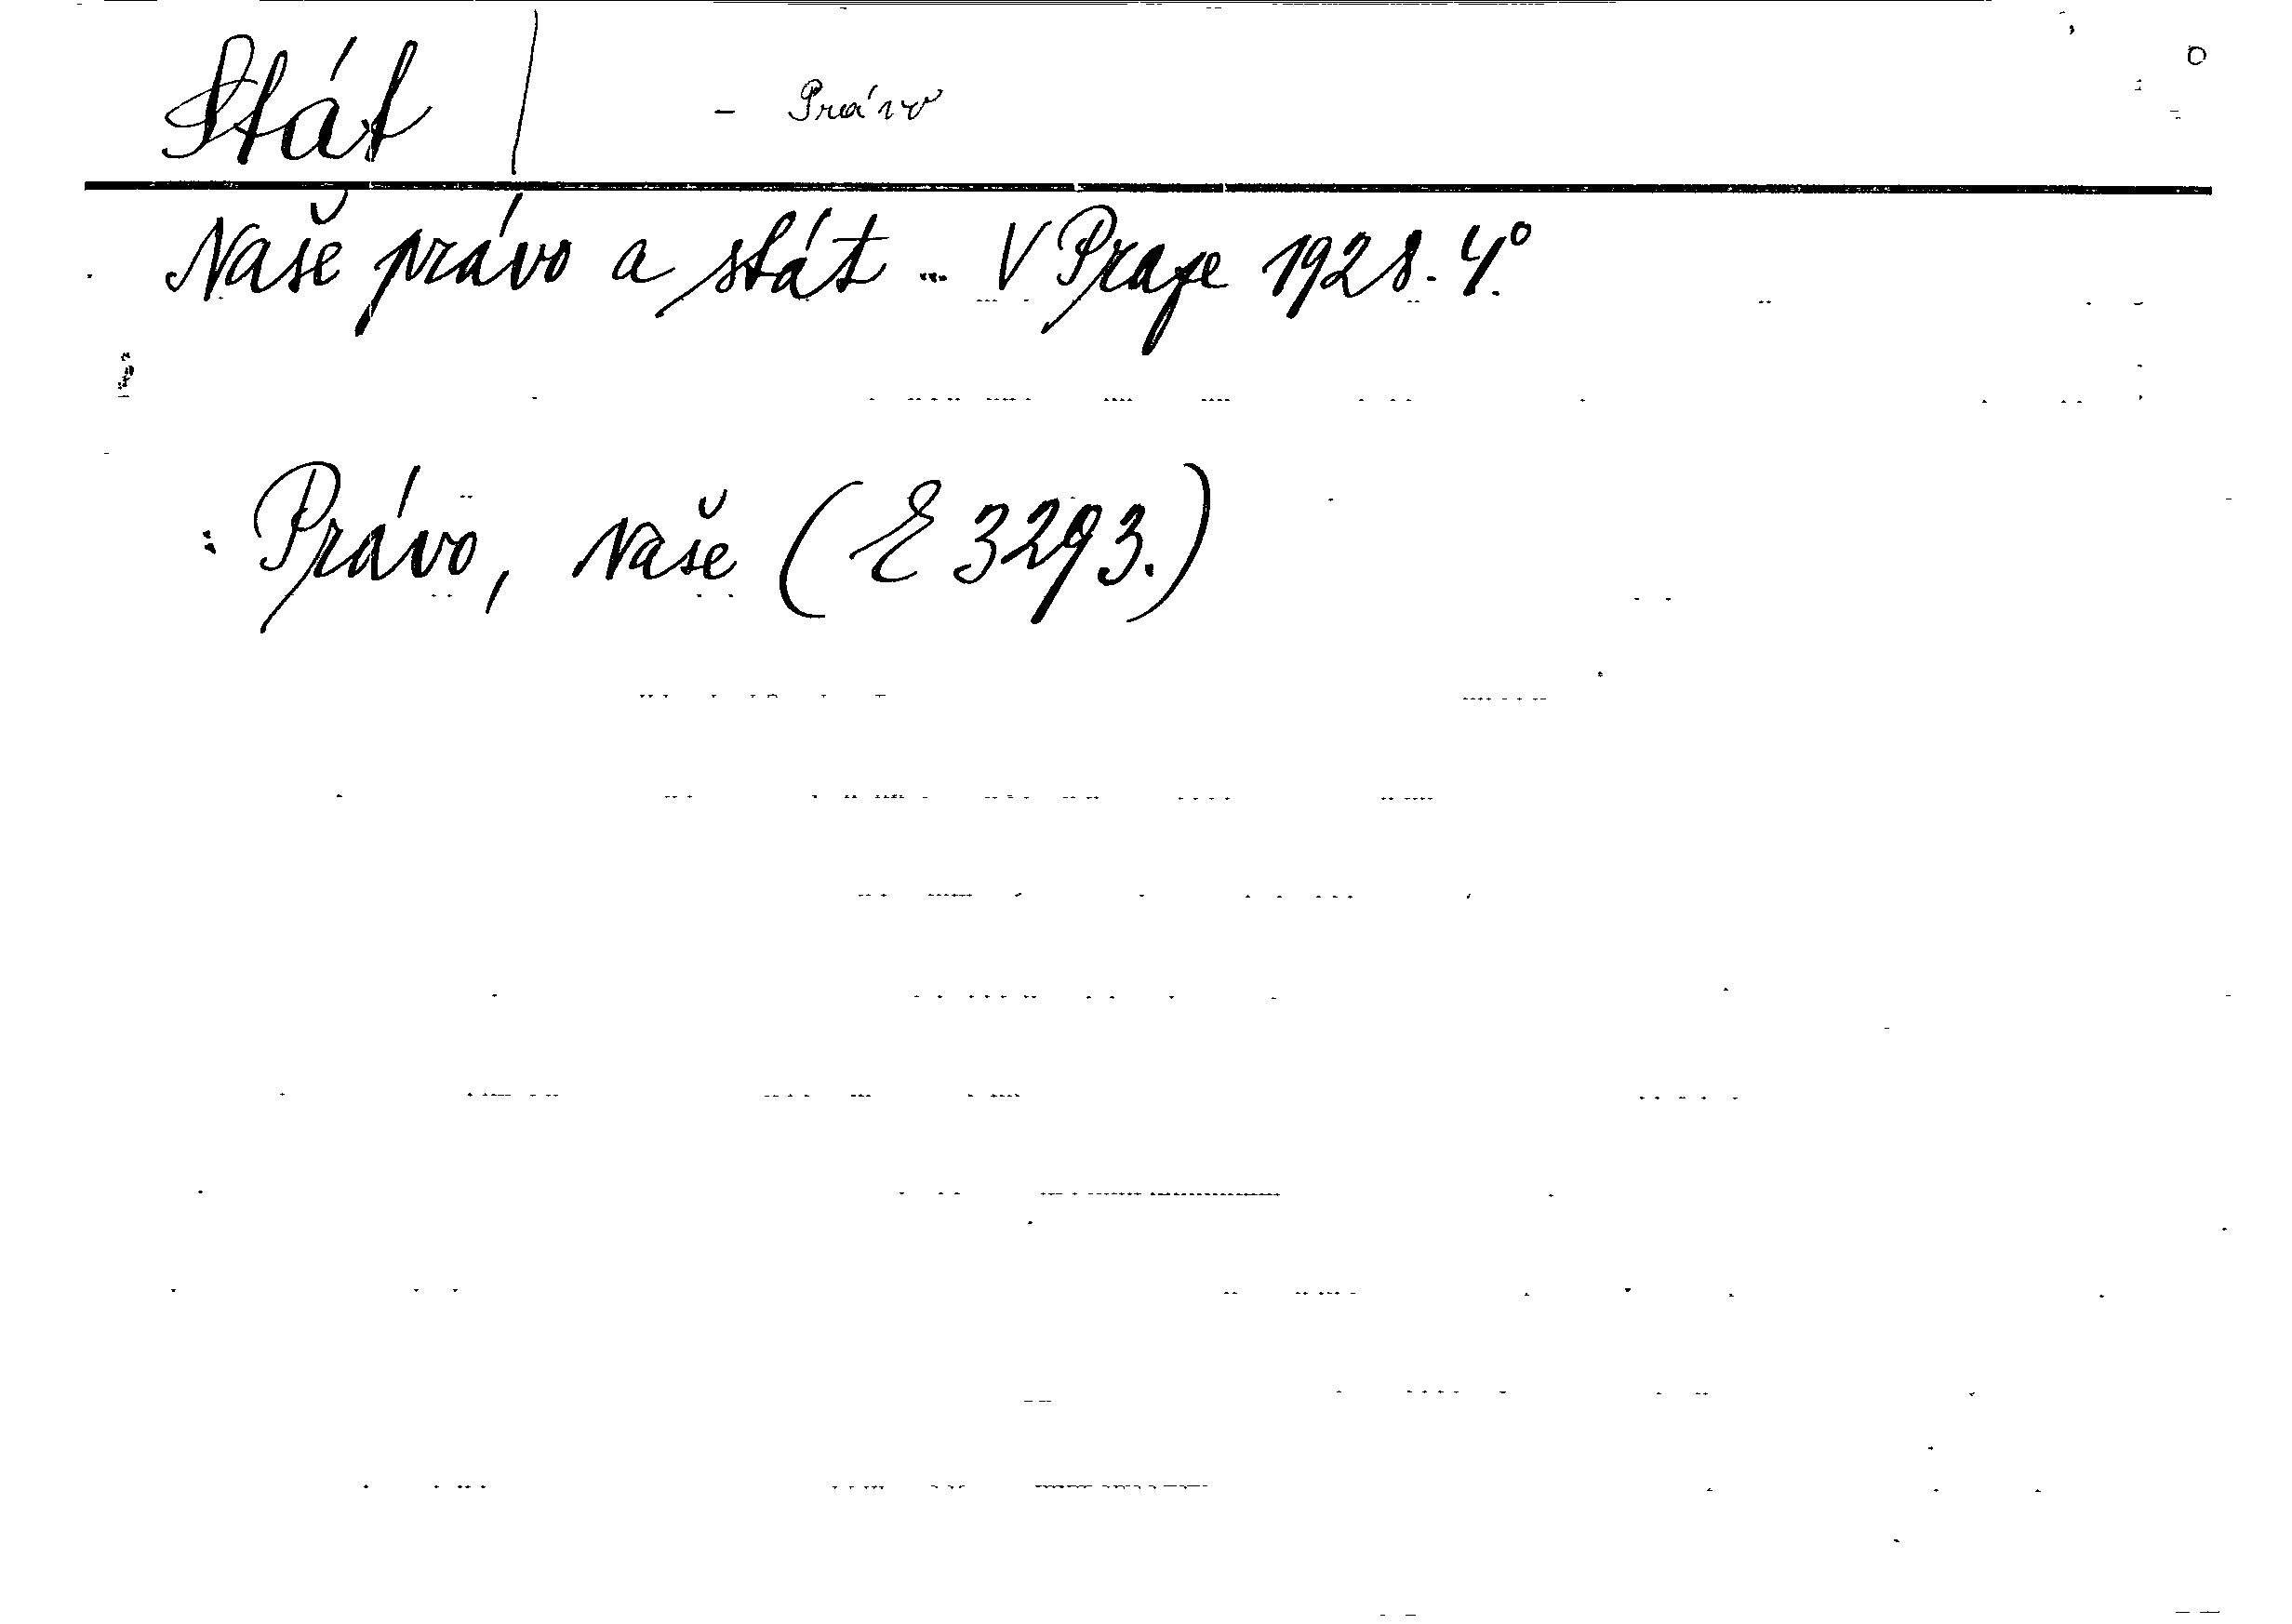 Stát | - Právo
Naše právo a stát ... V Praze 1928. 4°
: Právo, naše (E 3293.)